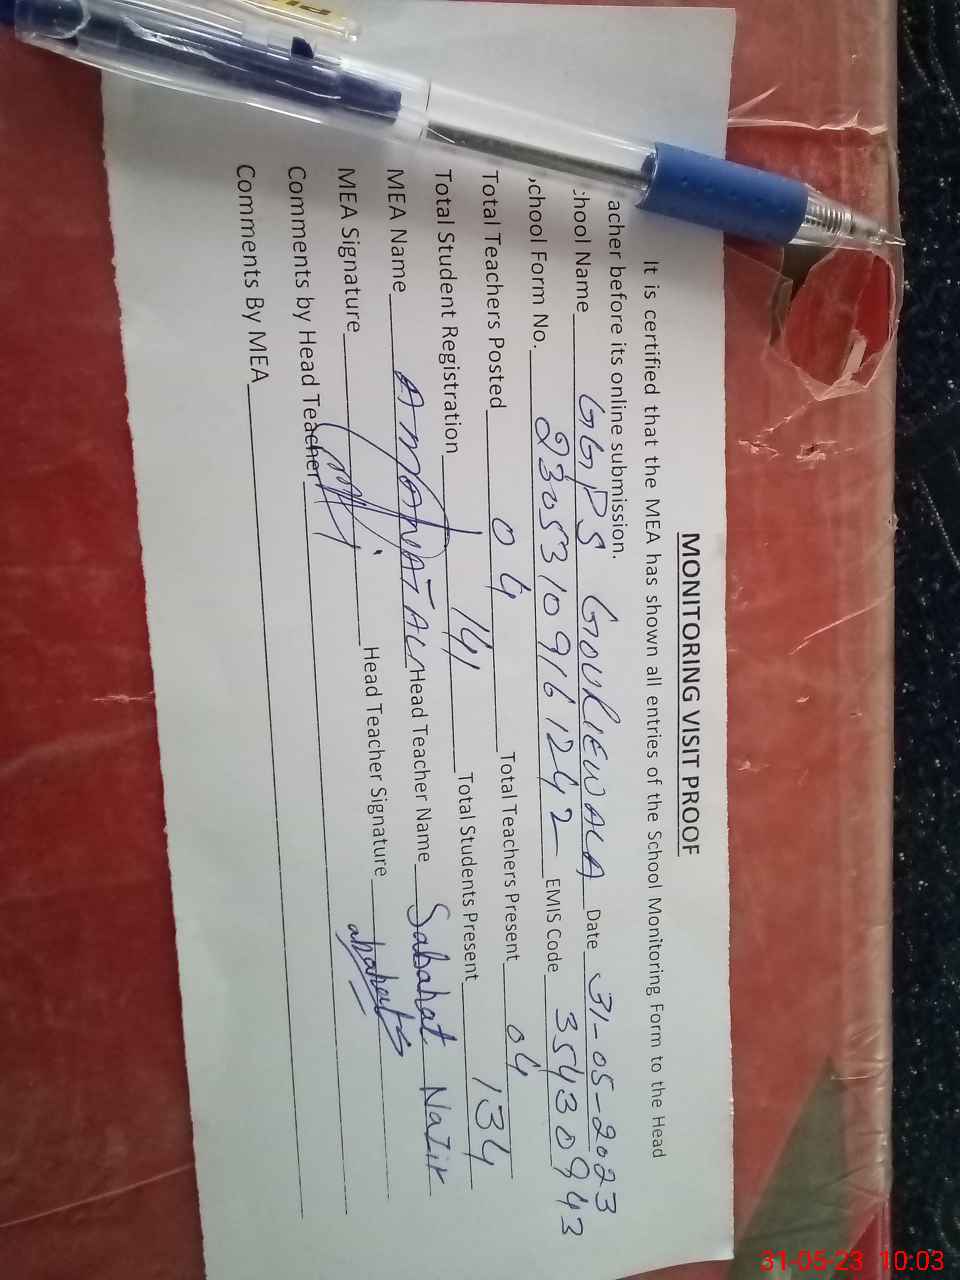 MONITORING VISIT PROOF
It is certified that the MEA has shown all entries of the School Monitoring Form to the Head
acher before its online submission.
chool Name GGPS GOURIEWALA Date 31-05-2023
chool Form No. 23053109161242 EMIS Code 35430943
Total Teachers Posted 04 Total Teachers Present 04
Total Student Registration 141 Total Students Present 134
MEA Name AMANAT ALI Head Teacher Name Sabahat Nazir
MEA Signature Head Teacher Signature
Comments by Head Teacher
Comments By MEA
31-05-23 10:03